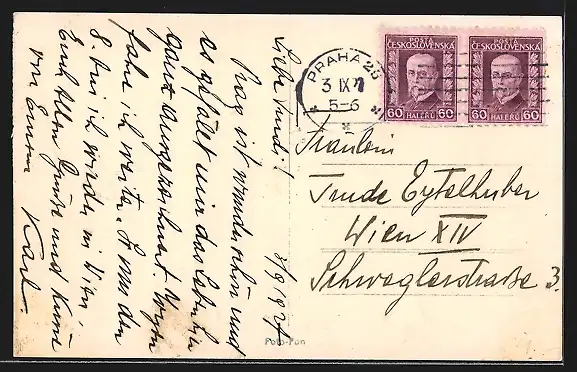 Liebe Trude!
3/9 1927
Prag ist wunderschön und
es gefällt mir das Leben hier
ganz ausgezeichnet. Morgen
fahre ich weiter.
8. bin ich wieder in Wien.
Euch Allen Grüße und Küsse
von Eurem Karl.
POŠTA
ČESKOSLOVENSKÁ
60 HALÉŘŮ 60
POŠTA
ČESKOSLOVENSKÁ
60 HALÉŘŮ 60
PRAHA 25
3 IX 27
5-6
Fräulein
Trude Eytelhuber
Wien XIV
Schweglerstrasse 3.
Foto-Fon